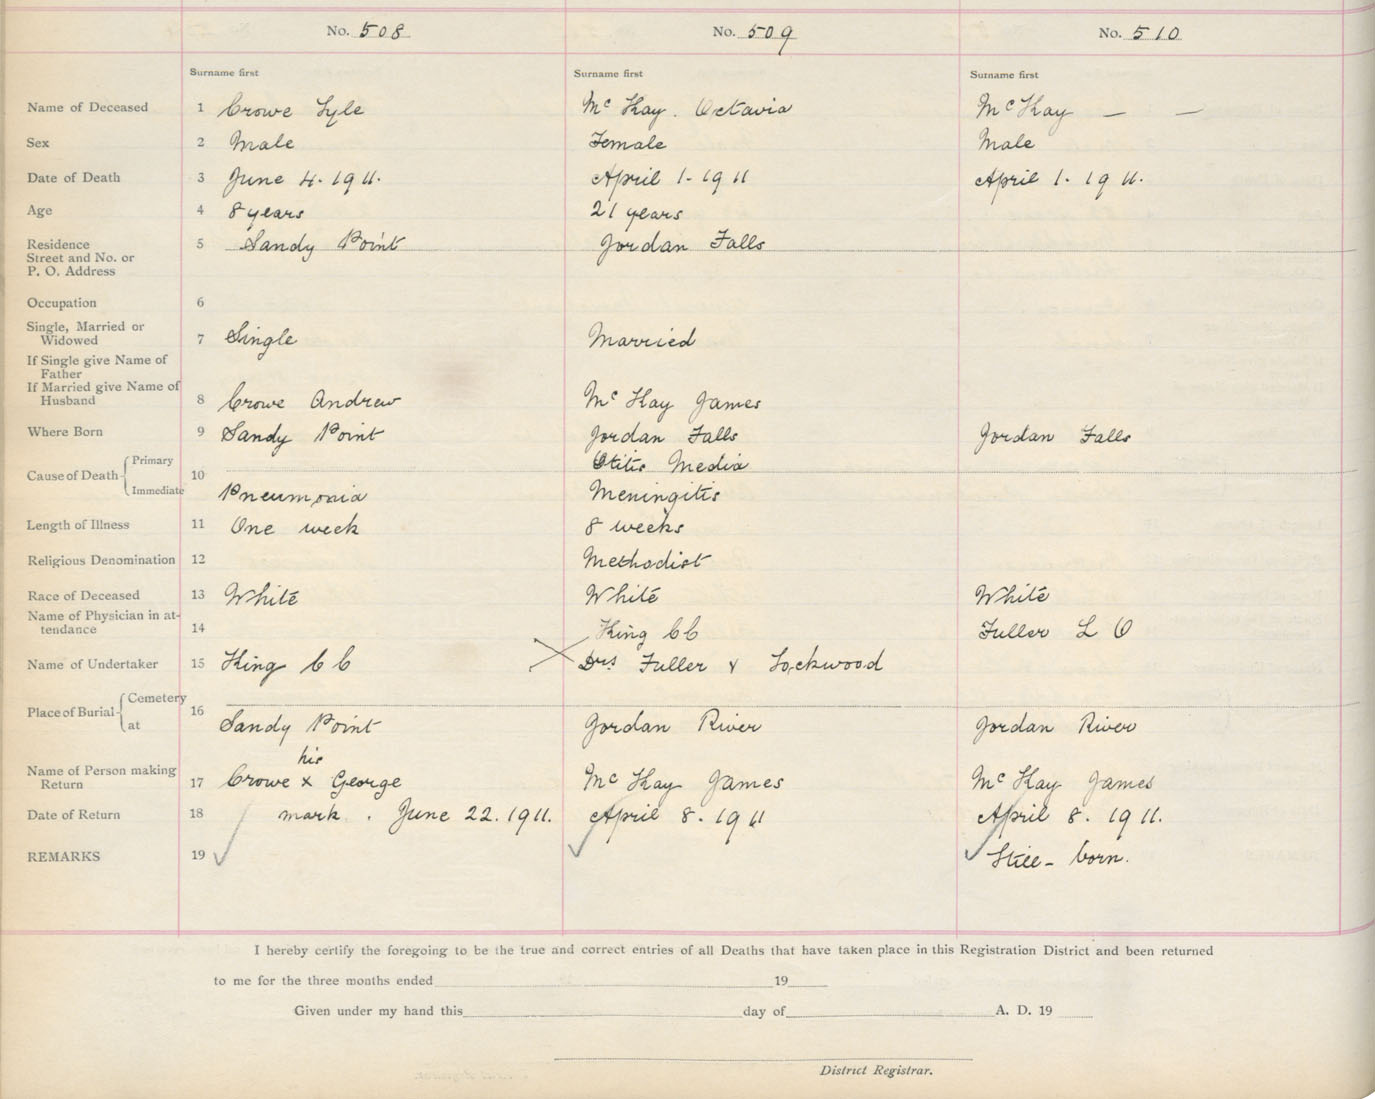 No. 508 No. 509 No. 510
Surname first Surname first Surname first
Name of Deceased 1 Crowe Lyle Mc Kay. Octavia Mc Kay — —
Sex 2 Male Female Male
Date of Death 3 June 4. 1911. April 1. 1911 April 1. 1911.
Age 4 8 years 21 years
Residence 5 Sandy Point Jordan Falls
Street and No. or
P. O. Address
Occupation 6
Single, Married or
Widowed 7 Single Married
If Single give Name of
Father
If Married give Name of
Husband 8 Crowe Andrew Mc Kay James
Where Born 9 Sandy Point Jordan Falls Jordan Falls
Primary Otitis Media
Cause of Death 10
Immediate Pneumonia Meningitis
Length of Illness 11 One week 8 weeks
Religious Denomination 12 Methodist
Race of Deceased 13 White White White
Name of Physician in at-
tendance 14 King C C Fuller L O
Name of Undertaker 15 King C C Drs Fuller & Lockwood
Cemetery
Place of Burial 16
at Sandy Point Jordan River Jordan River
his
Name of Person making
Return 17 Crowe x George Mc Kay James Mc Kay James
Date of Return 18 mark. June 22. 1911. April 8. 1911 April 8. 1911.
REMARKS 19 Still-born.
I hereby certify the foregoing to be the true and correct entries of all Deaths that have taken place in this Registration District and been returned
to me for the three months ended 19
Given under my hand this day of A. D. 19
District Registrar.